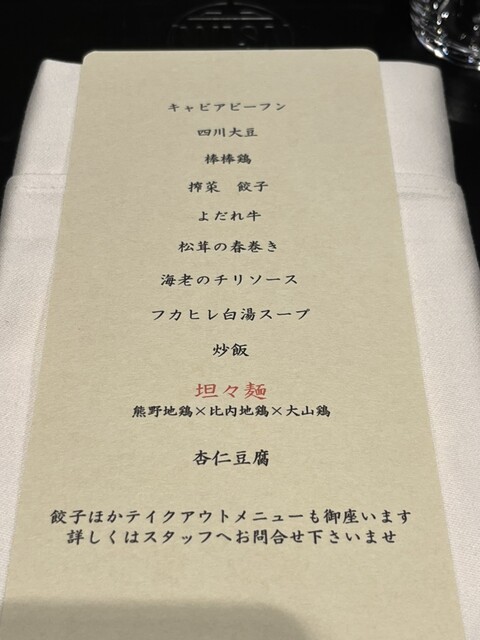 キャビアビーフン
四川大豆
棒棒鶏
搾菜　餃子
よだれ牛
松茸の春巻き
海老のチリソース
フカヒレ白湯スープ
炒飯
坦々麺
熊野地鶏×比内地鶏×大山鶏
杏仁豆腐
餃子ほかテイクアウトメニューも御座います
詳しくはスタッフへお問合せ下さいませ